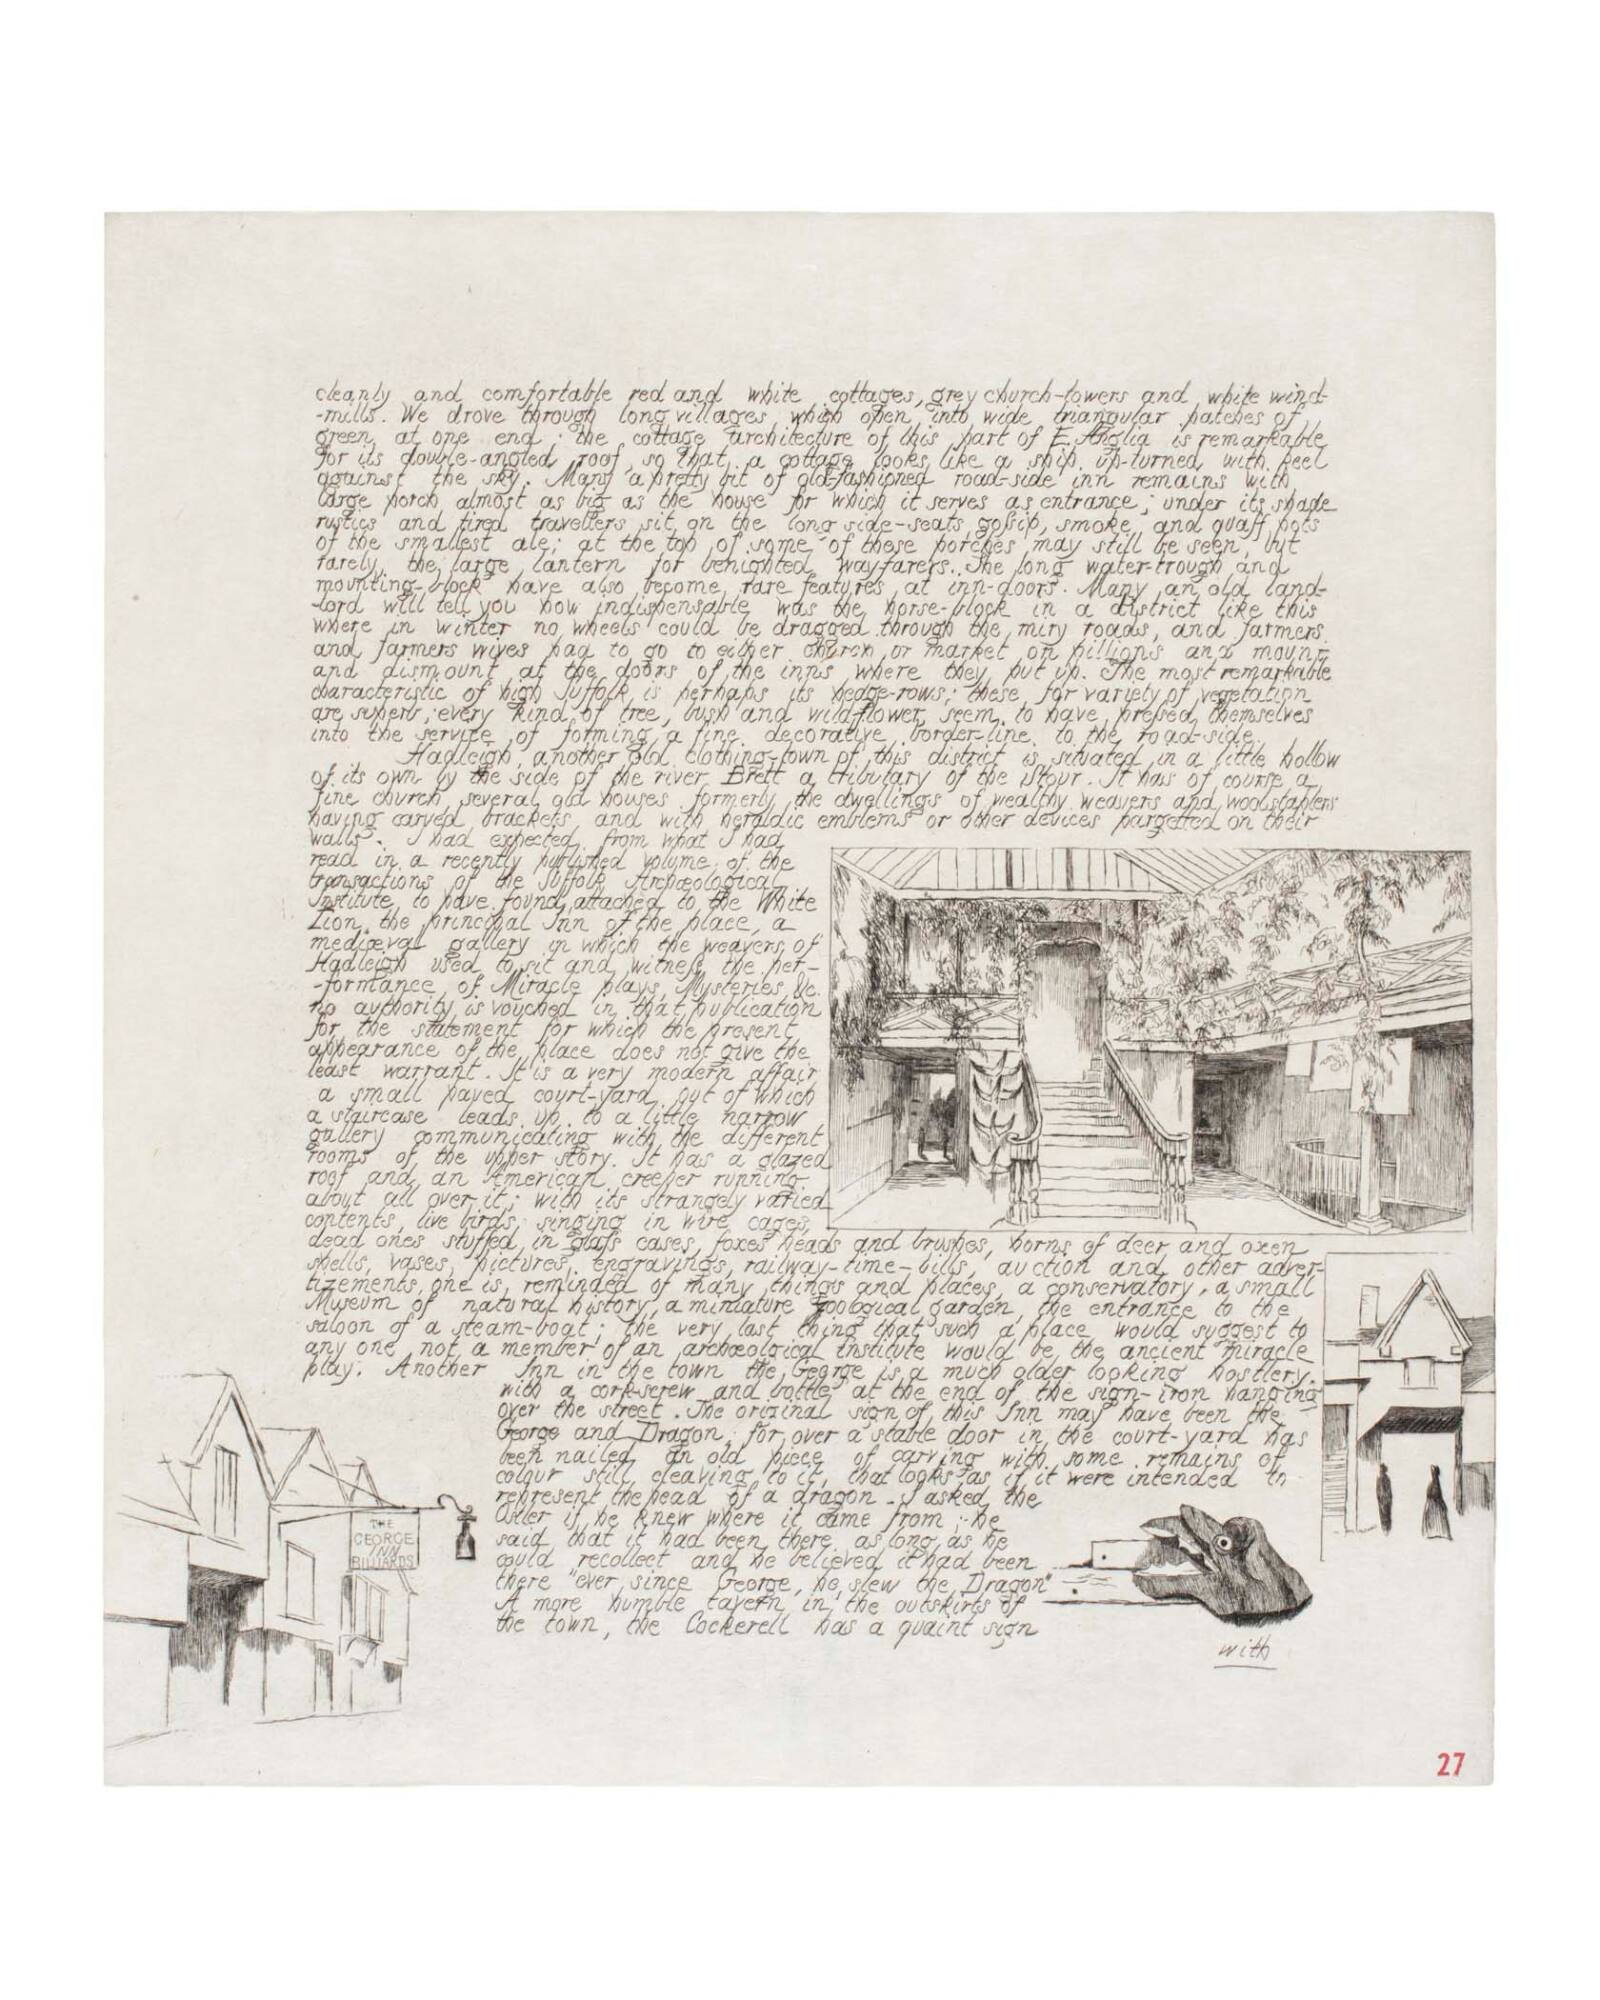 cleanly and comfortable red and white cottages, grey church-towers and white wind-
-mills. We drove through long villages which open into wide triangular patches of
green at one end; the cottage architecture of this part of E. Anglia is remarkable
for its double-angled roof, so that a cottage looks like a ship up-turned with keel
against the sky. Many a pretty bit of old-fashioned road-side inn remains with
large porch almost as big as the house for which it serves as entrance; under its shade
rustics and tired travellers sit on the long side-seats, gossip, smoke, and quaff pots
of the smallest ale; at the top of some of these porches may still be seen, but
rarely, the large lantern for benighted way-farers. The long water-trough and
mounting-block have also become rare features at inn-doors. Many an old land-
-lord will tell you how indispensable was the horse-block in a district like this
where in winter no wheels could be dragged through the miry roads, and farmers
and farmers wives had to go to either church or market on pillions and mount
and dismount at the doors of the inns where they put up. The most remarkable
characteristic of high Suffolk is perhaps its hedge-rows; these, for variety of vegetation
are superb; every kind of tree, bush and wild-flower seem to have pressed themselves
into the service of forming a fine decorative border-line to the road-side.
Hadleigh, another old clothing-town of this district is situated in a little hollow
of its own by the side of the river Brett a tributary of the Stour. It has of course a
fine church, several old houses formerly the dwellings of wealthy weavers and woolstaplers
having carved brackets and with heraldic emblems or other devices pargetted on their
walls. I had expected from what I had
read in a recently published volume of the
transactions of the Suffolk Archæological
Institute to have found attached to the White
Lion, the principal Inn of the place, a
mediæval gallery in which the weavers of
Hadleigh used to sit and witness the per-
-formance of Miracle plays, Mysteries &c.
no authority is vouched in that publication
for the statement for which the present
appearance of the place does not give the
least warrant. It is a very modern affair
a small paved court-yard out of which
a staircase leads up to a little narrow
gallery communicating with the different
rooms of the upper story. It has a glazed
roof and an American creeper running
about all over it; with its strangely varied
contents, live birds singing in wire cages,
dead ones stuffed in glass cases, foxes heads and brushes, horns of deer and oxen
shells, vases, pictures, engravings, railway-time-bills, auction and other adver-
tizements, one is reminded of many things and places, a conservatory, a small
Museum of natural history, a miniature Zoological garden, the entrance to the
saloon of a steam-boat; the very last thing that such a place would suggest to
any one not a member of an archæological institute would be the ancient miracle
play. Another Inn in the town the George is a much older looking hostlery.
with a cork-screw and bottle at the end of the sign-iron hanging
over the street. The original sign of this Inn may have been the
George and Dragon, for over a stable door in the court-yard has
been nailed an old piece of carving with some remains of
colour still cleaving to it, that looks as if it were intended to
represent the head of a dragon. I asked the
Ostler if he knew where it came from; he
said that it had been there as long as he
could recollect and he believed it had been
there "ever since George, he slew the Dragon"
A more humble tavern in the outskirts of
the town, the Cockerell has a quaint sign
with
THE
GEORGE
INN
BILLIARDS
27